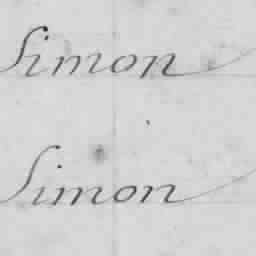 Simon
Simon